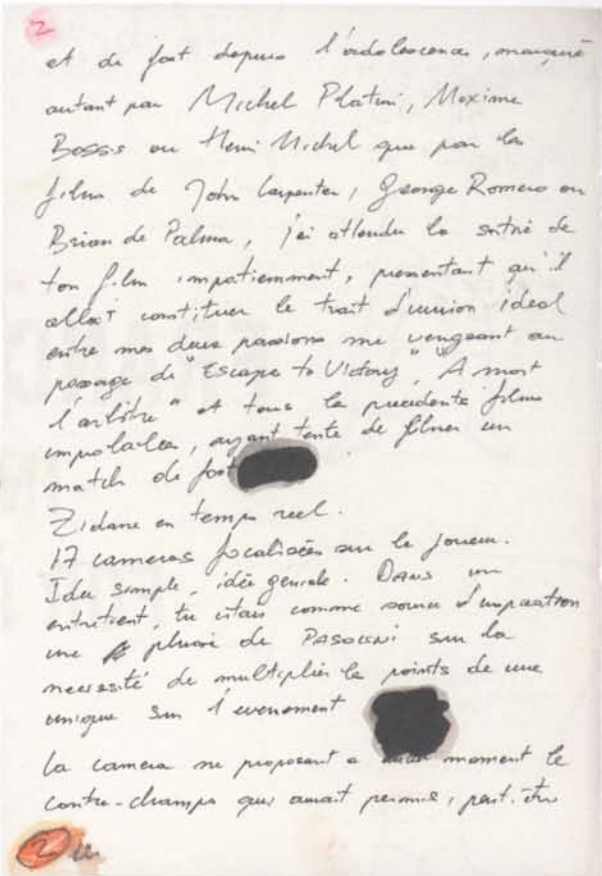 2
et de foot depuis l'adolescence, marqué
autant par Michel Platini, Maxime
Bossis ou Henri Michel que par les
films de John Carpenter, George Romero ou
Brian de Palma, j'ai attendu la sortie de
ton film impatiemment, pressentant qu'il
allait constituer le trait d'union ideal
entre mes deux passions me vengeant au
passage de "Escape to Victory", "A mort
l'arbitre" et tous les precedents films
ayant tenté de filmer un
match de foot
Zidane en temps reel.
17 cameras focalisées sur le joueur.
Idée simple, idée géniale. Dans un
entretient, tu citais comme source d'inspiration
une phrase de PASOLINI sur la
necessité de multiplier les points de vue
unique sur l'evenement
La camera ne proposant a moment le
contre-champs qui aurait permis, peut-être
2